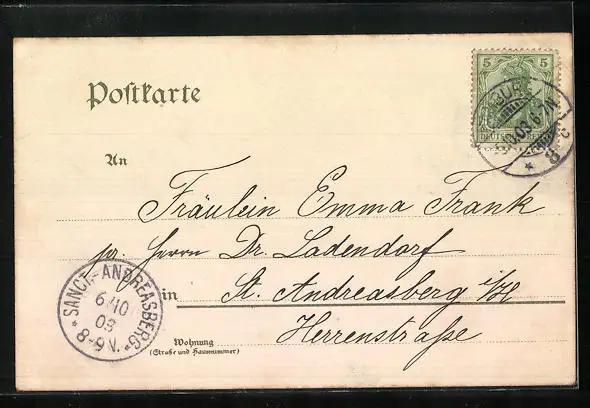 Postkarte
5 5
DEUTSCHES REICH
An
Fräulein Emma Frank
pr. Herrn Dr. Ladendorf
in St. Andreasberg i/H
Herrenstraße
Wohnung
(Straße und Hausnummer)
* SANCT-ANDREASBERG *
6/10
03
8-9 V.